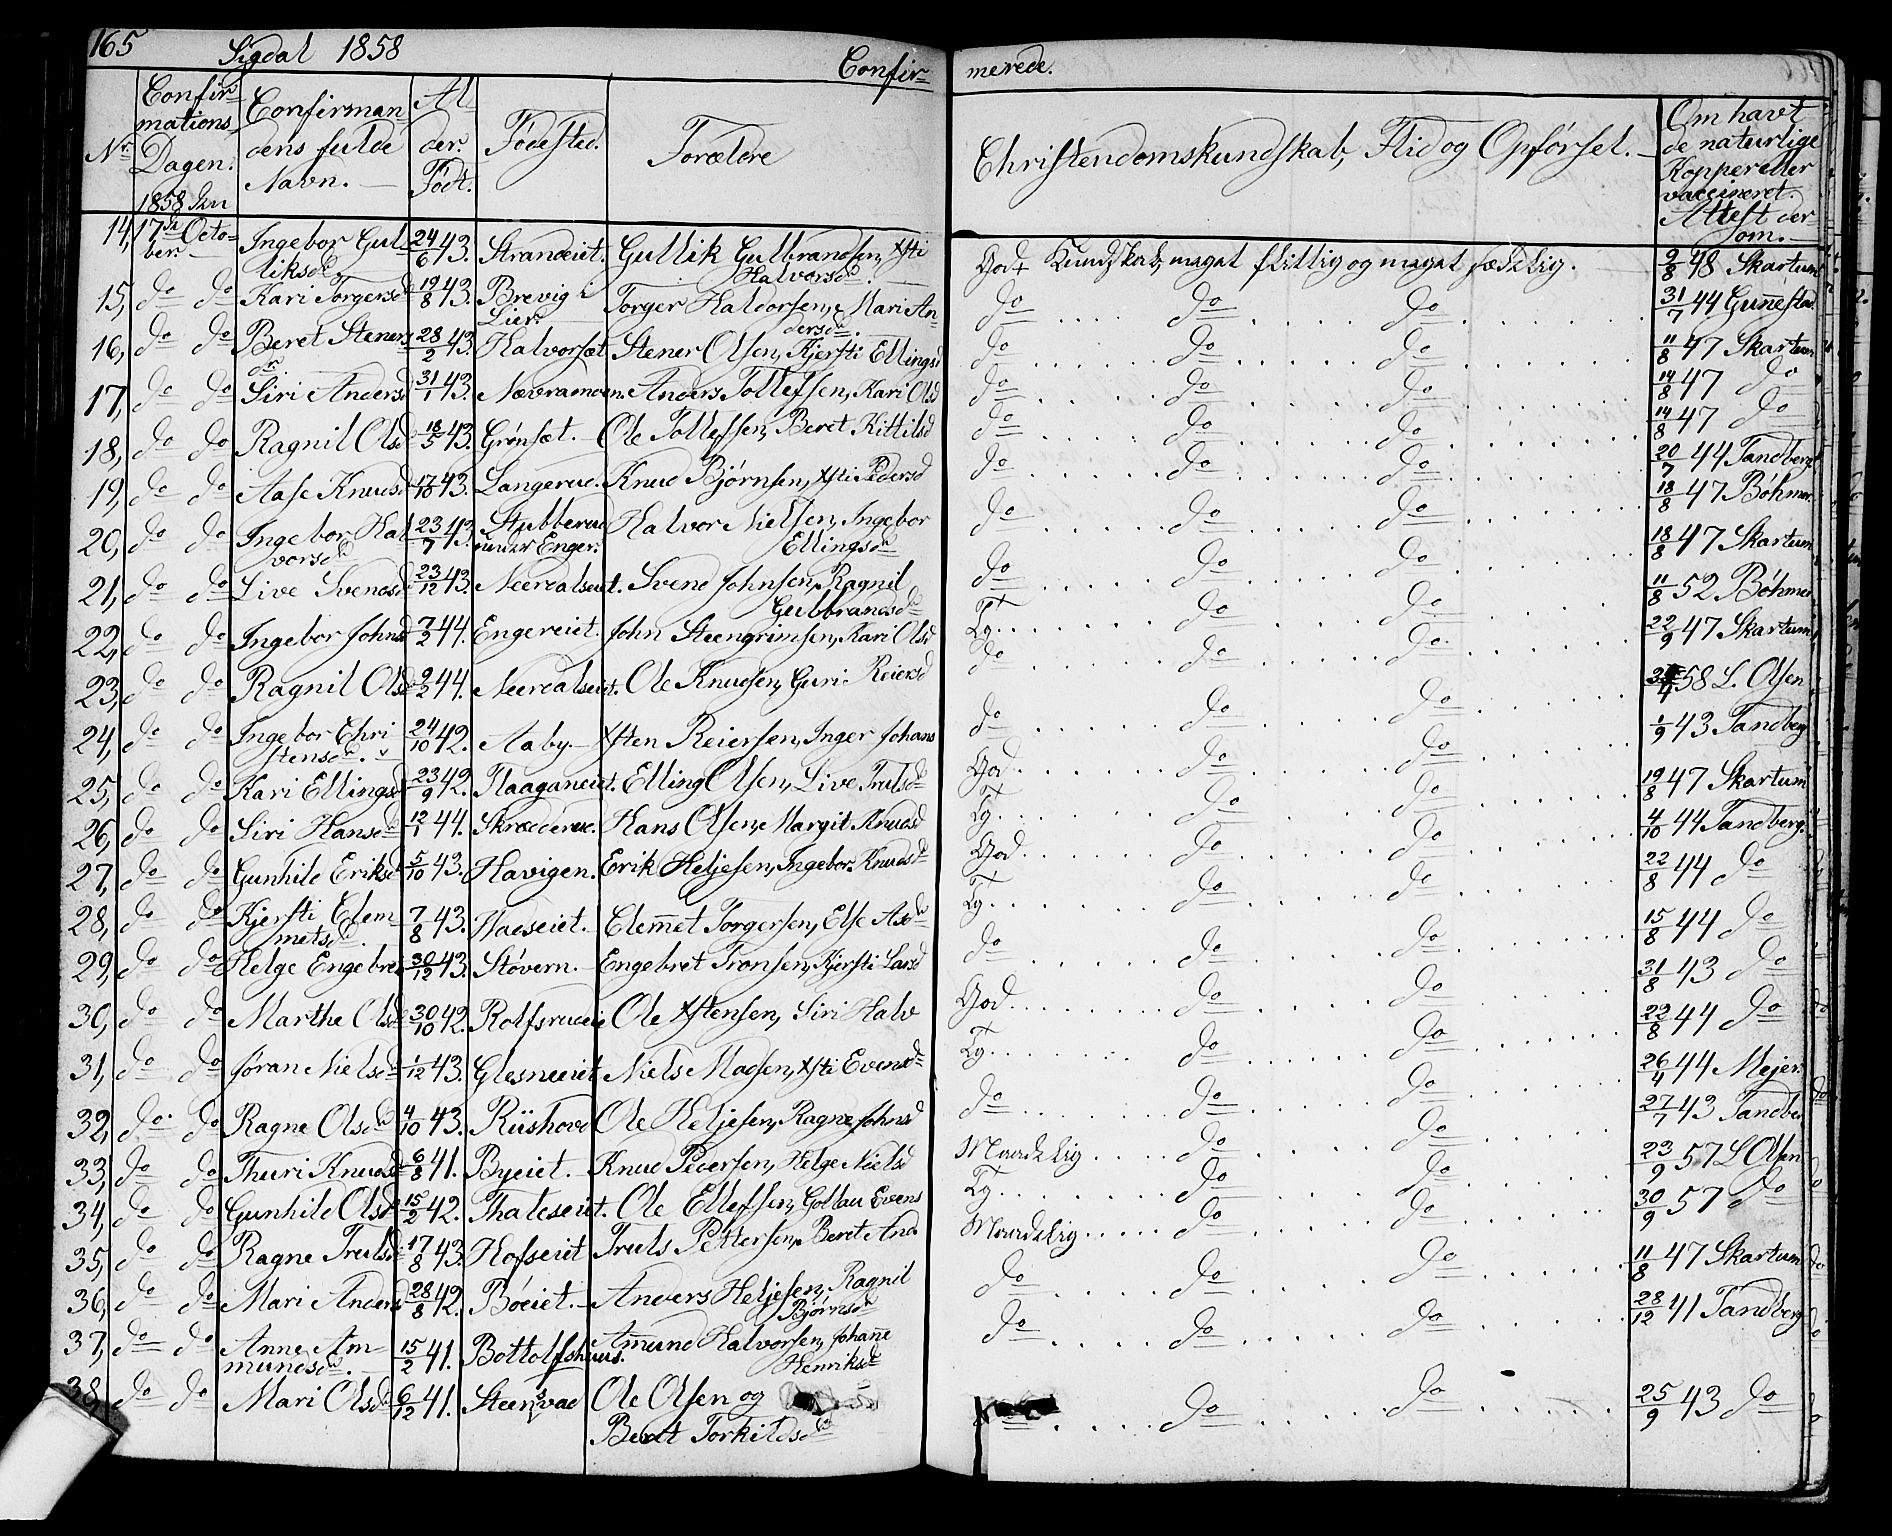 165 Sigdal 1858 Confir-
merede.
Nr.
Confir-
mations
Dagen.
1858 den
Confirman
dens fulde
Navn.
Al
der.
Födt.
Födested.
Forældre
Christendomskundskab, Flid og Opförsel.
Om havt
de naturlige
Kopper eller
vaccineret.
Attest der-
om.
14, 17de Octo- Ingebor Gul- 24/6 43. Strandeiet. Gullik Gulbrandsen, Xsti God Kundskab, meget flittig og meget sædelig. 9/8 48 Skartum
ber. liksd. Halvorsd.
15, do do Kari Torgersd 19/8 43. Brevig i Torger Halvorsen, Mari An- do do do 31/7 44 Gunnestad
Lier. dersd.
16, do do Beret Steners 28/2 43. Halvorset. Stener Olsen, Kjersti Ellingsd do do do 11/8 47 Skartum
dr.
17, do do Siri Andersd 31/1 43. Næveramoen. Anders Tollefsen, Kari Olsd do do do 14/8 47 do
18, do do Ragnil Olsd 18/5 43. Grønset. Ole Tollefsen, Beret Kittilsd do do do 14/8 47 do
19, do do Aase Knudsd 17/10 43. Langerud. Knud Bjørnsen, Xsti Pedersd do do do 20/7 44 Tandberg
20, do do Ingebor Hal 23/7 43. Stubberud Halvor Nielsen, Ingebor do do do 18/8 47 Bøhmer
vorsd under Enger. Ellingsd
21, do do Live Svendsd 23/12 43. Nerdalseiet. Svend Johnsen, Ragnil do do do 18/8 47 Skartum
Gulbrandsd
22, do do Ingebor Johnsd 7/2 44. Engereiet. John Steengrimsen, Kari Olsd Tg. do do 11/8 52 Bøhmer
23, do do Ragnil Olsd 9/2 44. Nerdalseiet. Ole Knudsen, Guri Reiersd do do do 22/9 47 Skartum
24, do do Ingebor Chri 24/10 42. Aaby. Xsten Reiersen, Inger Johans do do do 58 L. Olsen
stensd.
25, do do Kari Ellingsd 23/9 42. Flaaganeiet. Elling Olsen, Live Trulsd God do do 1/9 43 Tandberg
26, do do Siri Hansd 12/1 44. Skrædderud. Hans Olsen, Margit Knudsd Tg. do do 19/8 47 Skartum
27, do do Gunhild Eriksd 5/10 43. Havigen. Erik Heljesen, Ingebor Knudsd God do do 4/10 44 Tandberg.
28, do do Kjersti Clem 7/8 43. Haeseiet. Clemmet Torgersen, Else Asd Tg. do do 22/8 44 do
metsd.
29, do do Helge Engebre 30/12 43. Støvern. Engebret Tronsen, Kjersti Larsd do do do 15/8 44 do
30, do do Marthe Olsd 30/10 42. Rolfsrudeie Ole Xstensen, Siri Halv God do do 31/8 43 do
31, do do Jøran Nielsd 1/12 43. Glesneeiet Niels Madsen, Xsti Evensd Tg. do do 22/8 44 do
32, do do Ragne Olsd 4/10 43. Riishovd Ole Heljesen, Ragne Johnsd do do do 26/4 44 Mejer.
33, do do Thuri Knudsd 6/8 41. Byeiet. Knud Pedersen, Helge Nielsd Maadelig do do 27/7 43 Tandber
34, do do Gunhild Olsd 15/2 42. Thaleseiet. Ole Ellefsen, Gollau Evens Tg. do do 23/9 57 L Olsen
35, do do Ragne Trulsd 17/8 43. Hofseiet Truls Pettersen, Beret And Maadelig do do 30/9 57 do
36, do do Mari Anders 28/8 42. Bøeiet. Anders Heljesen, Ragnil do do do 11/8 47 Skartum
Bjørnsd
37, do do Anne Am- 15/2 41. Bottolfshuus. Amund Halvorsen, Johanne do do do 28/12 41 Tandberg
mundsd. Henriksd
38, do do Mari Olsd. 6/12 41. Steensvad Ole Olsen og do do 25/9 43 do
Beret Torkildsd